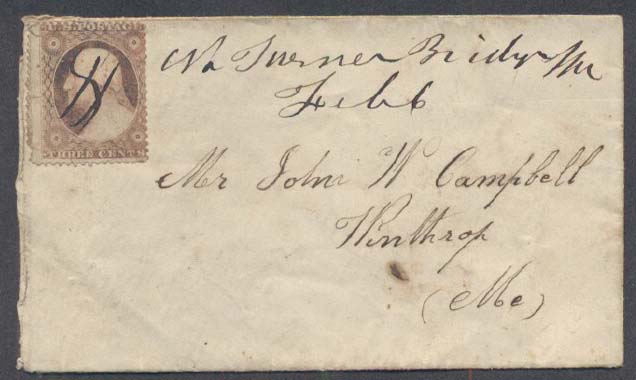 U.S. POSTAGE
No Turner Bridge Me
Feb 6
THREE CENTS
Mr John W Campbell
Winthrop
(Me)